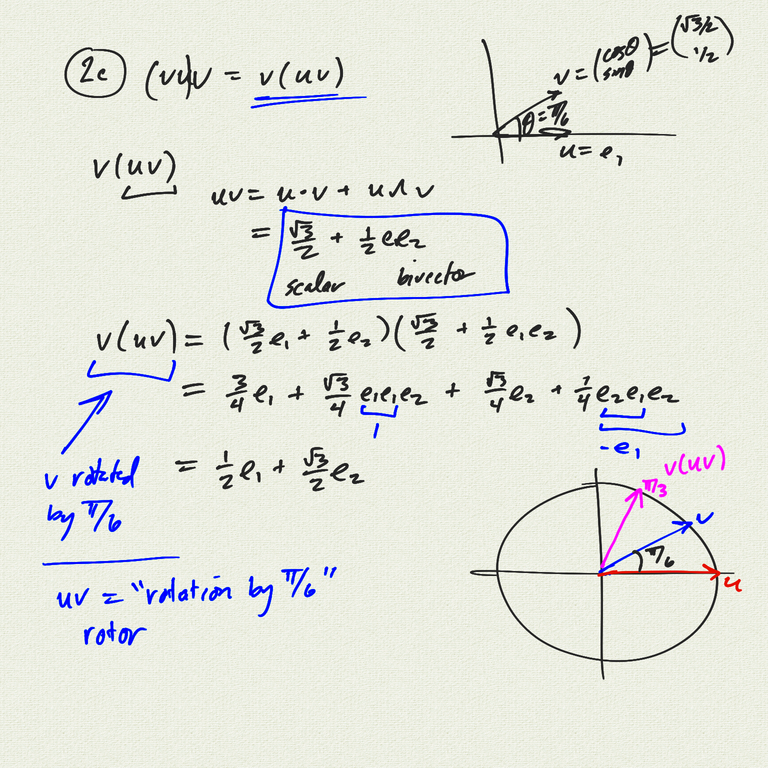 2c (vu)v = v(uv)
v = (cosθ sinθ) = (√3/2 1/2)
θ = π/6
u = e₁
v(uv)
uv = u·v + u∧v
= √3/2 + 1/2 ee₂
scalar bivector
v(uv) = (√3/2 e₁ + 1/2 e₂)(√3/2 + 1/2 e₁e₂)
= 3/4 e₁ + √3/4 e₁e₁e₂ + √3/4 e₂ + 1/4 e₂e₁e₂
1
-e₁
v rotated
by π/6
= 1/2 e₁ + √3/2 e₂
v(uv)
π/3
v
π/6
u
uv = "rotation by π/6"
rotor